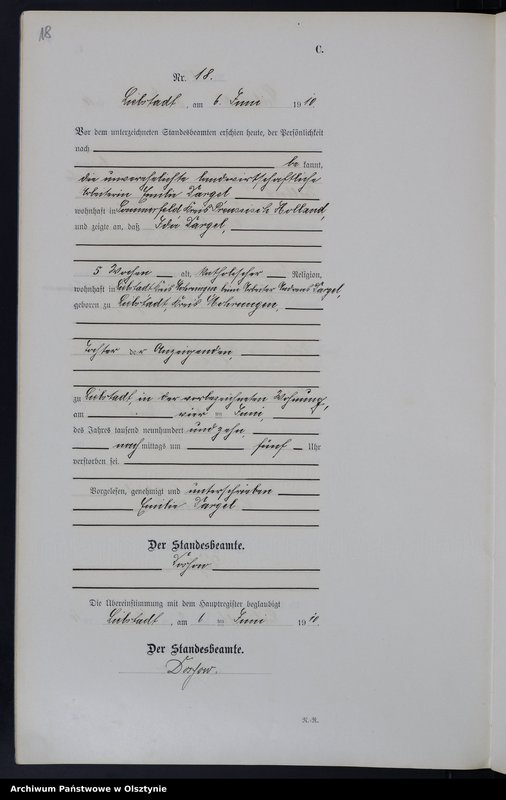 18
C.
Nr. 18.
Liebstadt, am 6. Juni 1910.
Vor dem unterzeichneten Standesbeamten erschien heute, der Persönlichkeit
nach
be kannt,
die unverehelichte landwirtschaftliche
Arbeiterin Emilie Dargel
wohnhaft in Sommerfeld Kreis Preussisch Holland,
und zeigte an, daß Ida Dargel,
5 Wochen alt, katholischer Religion,
wohnhaft in Liebstadt Kreis Mohrungen beim Arbeiter Andreas Dargel,
geboren zu Liebstadt, Kreis Mohrungen,
Tochter der Anzeigenden,
zu Liebstadt, in der vorbezeichneten Wohnung,
am vier ten Juni,
des Jahres tausend neunhundert und zehn,
nach mittags um fünf Uhr
verstorben sei.
Vorgelesen, genehmigt und unterschrieben
Emilie Dargel
Der Standesbeamte.
Dorsow
Die Übereinstimmung mit dem Hauptregister beglaubigt
Liebstadt, am 6 ten Juni 1910.
Der Standesbeamte.
Dorsow.
Archiwum Państwowe w Olsztynie